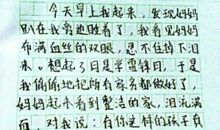 今天早上我起来，发现妈妈
趴在旁边睡着了，我看见妈妈
布满血丝的双眼，忍不住掉下泪
来。想起了今日是学雷锋日，于是
我偷偷地把所有家务都做好了，
妈妈起来看到整洁的家，泪流满
面，对我说：有你这样的孩子真